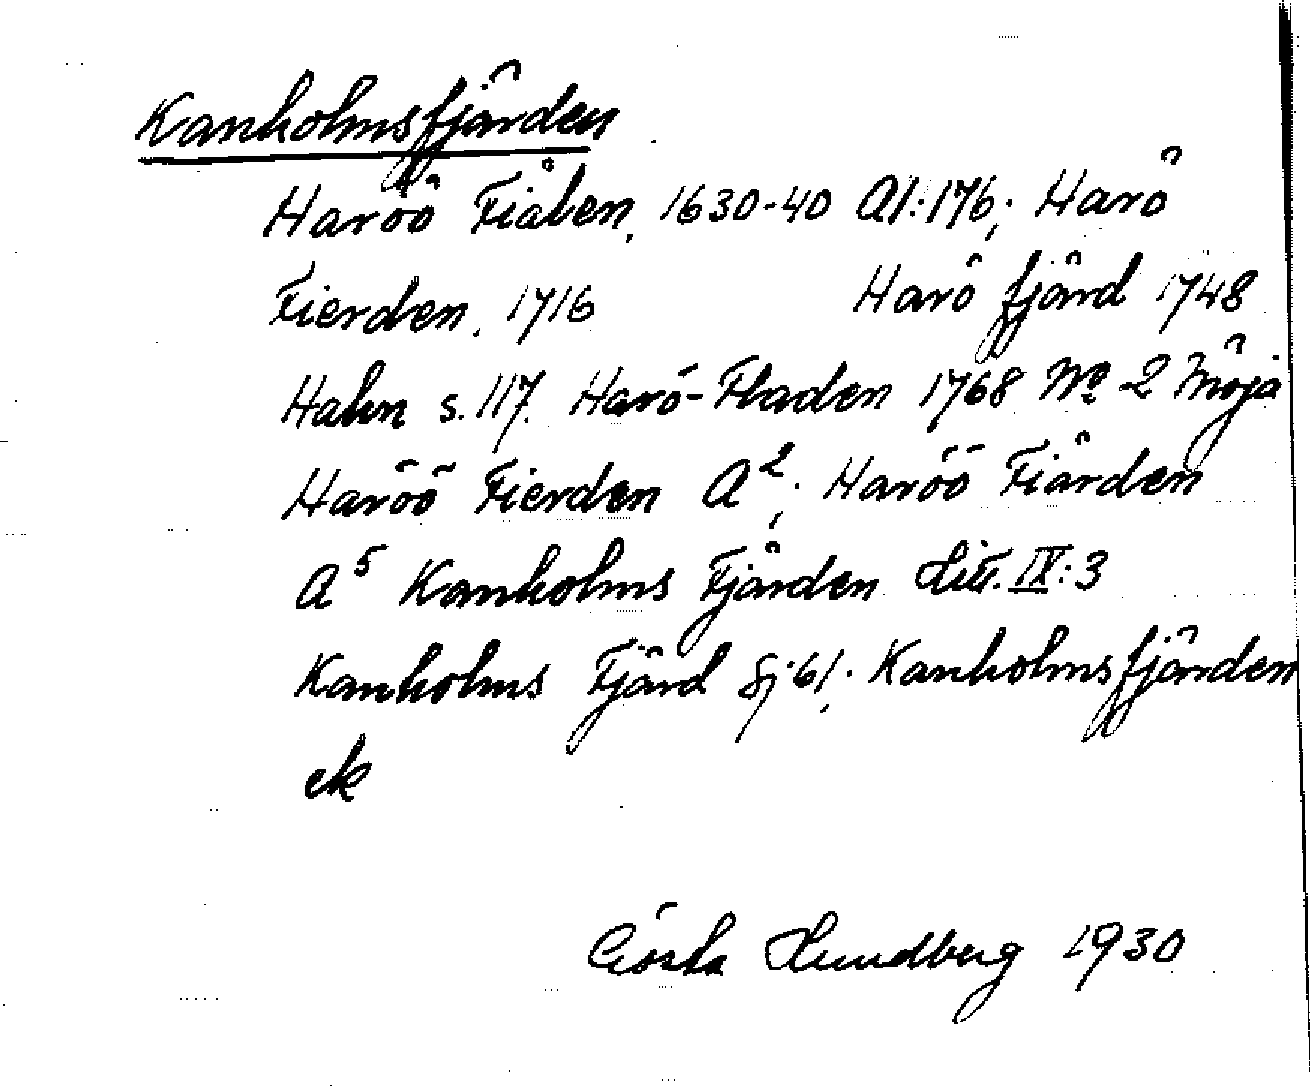 Kanholmsfjärden
Haröö Fiålen, 1630-40 A1:176; Harö
Fierden, 1716 Harö fjärd 1748
Hahn s. 117. Harö-Fladen 1768 No 2 Möja
Haröö Fierden A2; Haröö Fiärden
A5 Kanholms Fjärden Litt. IX:3
Kanholms Fjärd Sj 61; Kanholmsfjärden
ek
Gösta Lundberg 1930